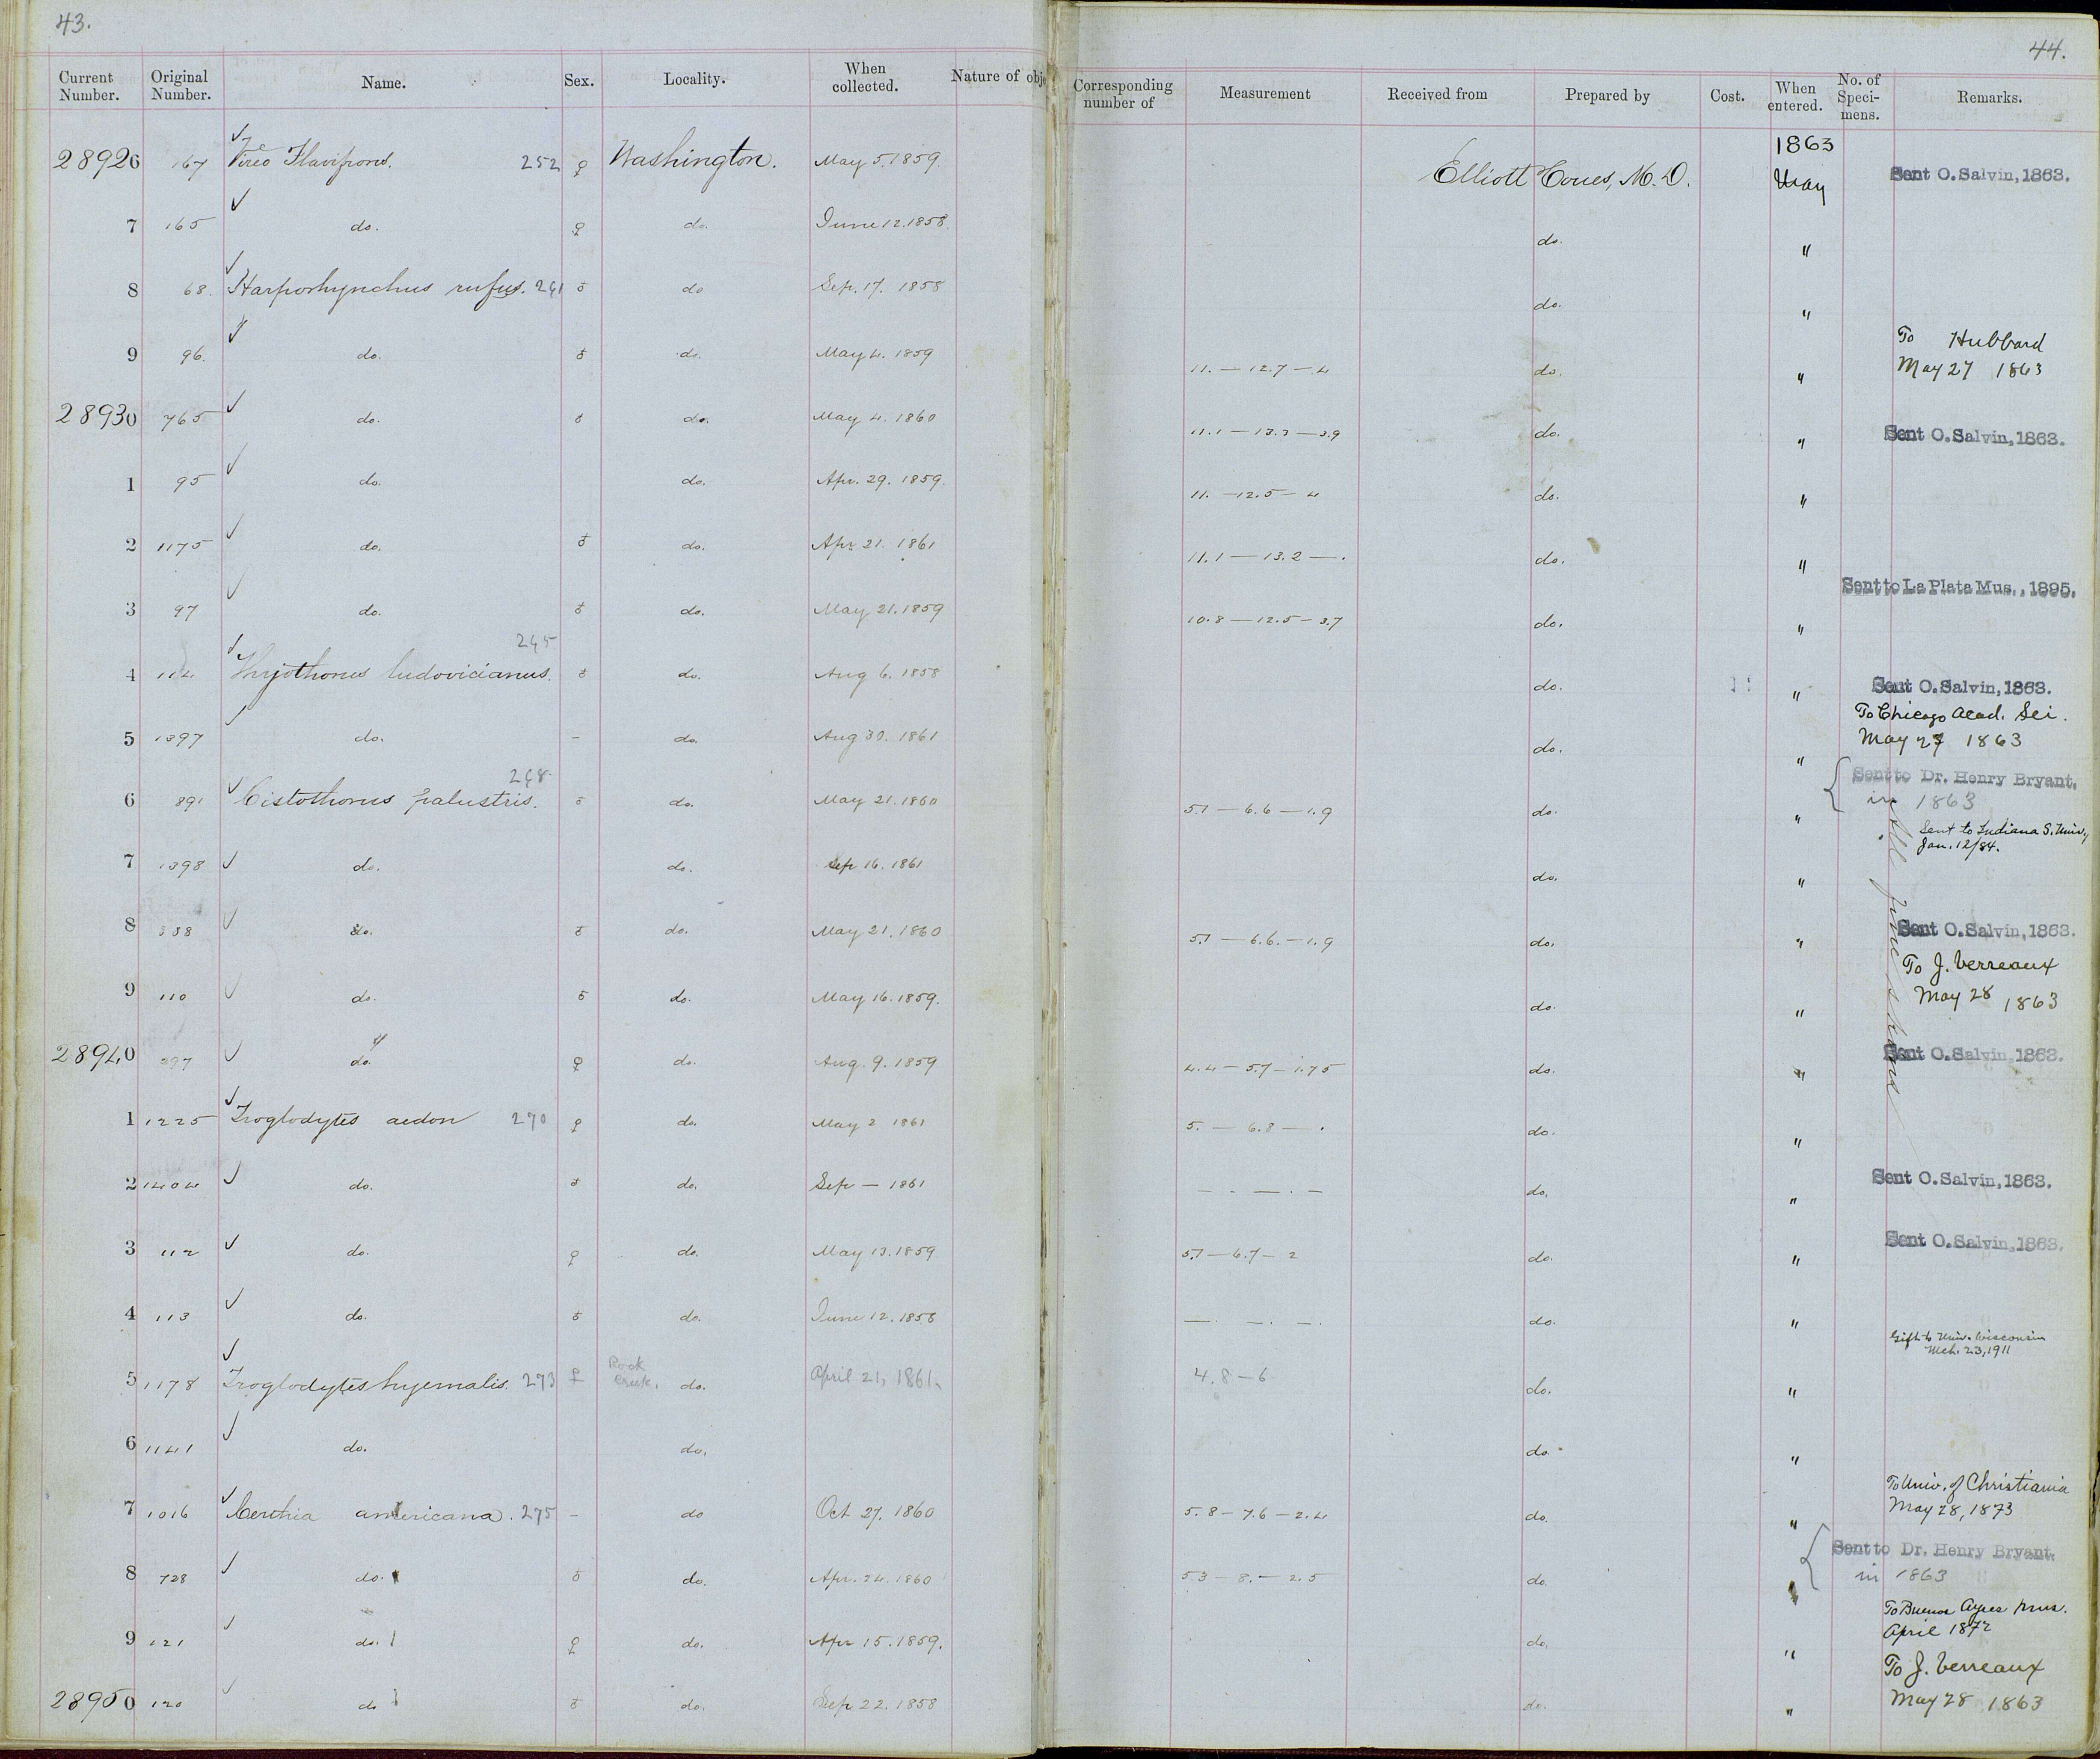 43.
Current Number. Original Number. Name. Sex. Locality. When collected. Nature of obje
28926 167 Vireo Flavifrons. 252 ♀ Washington. May 5. 1859.
7 165 do. ♀ do. June 12. 1858.
8 68. Harporhynchus rufus. 261 ♂ do Sep. 17. 1858
9 96. do. ♂ do. May 4. 1859
28930 765 do. ♂ do. May 4. 1860
1 95 do. do. Apr. 29. 1859.
2 1175 do. ♂ do. Apr. 21. 1861
3 97 do. ♂ do. May 21. 1859
265
4 114 Thryothorus ludovicianus. ♂ do. Aug 6. 1858
5 1397 do. – do. Aug 30. 1861
268
6 891 Cistothorus palustris. ♂ do. May 21. 1860
7 1398 do. do. Sep 16. 1861
8 888 do. ♂ do. May 21. 1860
9 110 do. ♂ do. May 16. 1859.
28940 397 do. ♀ do. Aug. 9. 1859
1 1225 Troglodytes aedon 270 ♀ do. May 2 1861
2 1404 do. ♂ do. Sep – 1861
3 112 do. ♀ do. May 13. 1859
4 113 do. ♂ do. June 12. 1858
5 1178 Troglodytes hyemalis. 273 ♀ Rock Creek. do. April 21, 1861.
6 1141 do. do.
7 1016 Certhia americana. 275 – do Oct 27. 1860
8 728 do. ♂ do. Apr. 24. 1860
9 121 do. ♀ do. Apr 15. 1859.
28950 120 do ♂ do. Sep 22. 1858
44.
Corresponding number of Measurement Received from Prepared by Cost. When entered. No. of Specimens. Remarks.
1863
Elliott Coues, M.D. May Sent O. Salvin, 1863.
do. "
do. "
To Hubbard
11. – 12.7 – 4 do. " May 27 1863
11.1 – 13.3 – 3.9 do. " Sent O. Salvin, 1863.
11. – 12.5 – 4 do. "
11.1 – 13.2 – . do. "
Sent to La Plata Mus., 1895.
10.8 – 12.5 – 3.7 do. "
do. " Sent O. Salvin, 1863.
To Chicago Acad. Sci.
do. " May 27 1863
Sent to Dr. Henry Bryant.
5.1 – 6.6 – 1.9 do. " in 1863
Sent to Indiana S. Univ,
Jan. 12/84.
do. "
5.1 – 6.6. – 1.9 do. " Sent O. Salvin, 1863.
To J. Verreaux
do. " May 28 1863
4.4 – 5.7 – 1.75 do. " Sent O. Salvin, 1863.
5. – 6.8 – . do. "
– . – . – do. " Sent O. Salvin, 1863.
5.1 – 6.7 – 2 do. " Sent O. Salvin, 1863.
– . – . – . do. "
Gift to Univ. Wisconsin
Mch. 23, 1911
4.8 – 6 do. "
do. "
To Univ. of Christiania
5.8 – 7.6 – 2.4 do. " May 28, 1873
Sent to Dr. Henry Bryant.
5.3 – 8. – 2.5 do. " in 1863
To Buenos Ayres Mus.
do. " April 1872
To J. Verreaux
do. " May 28 1863